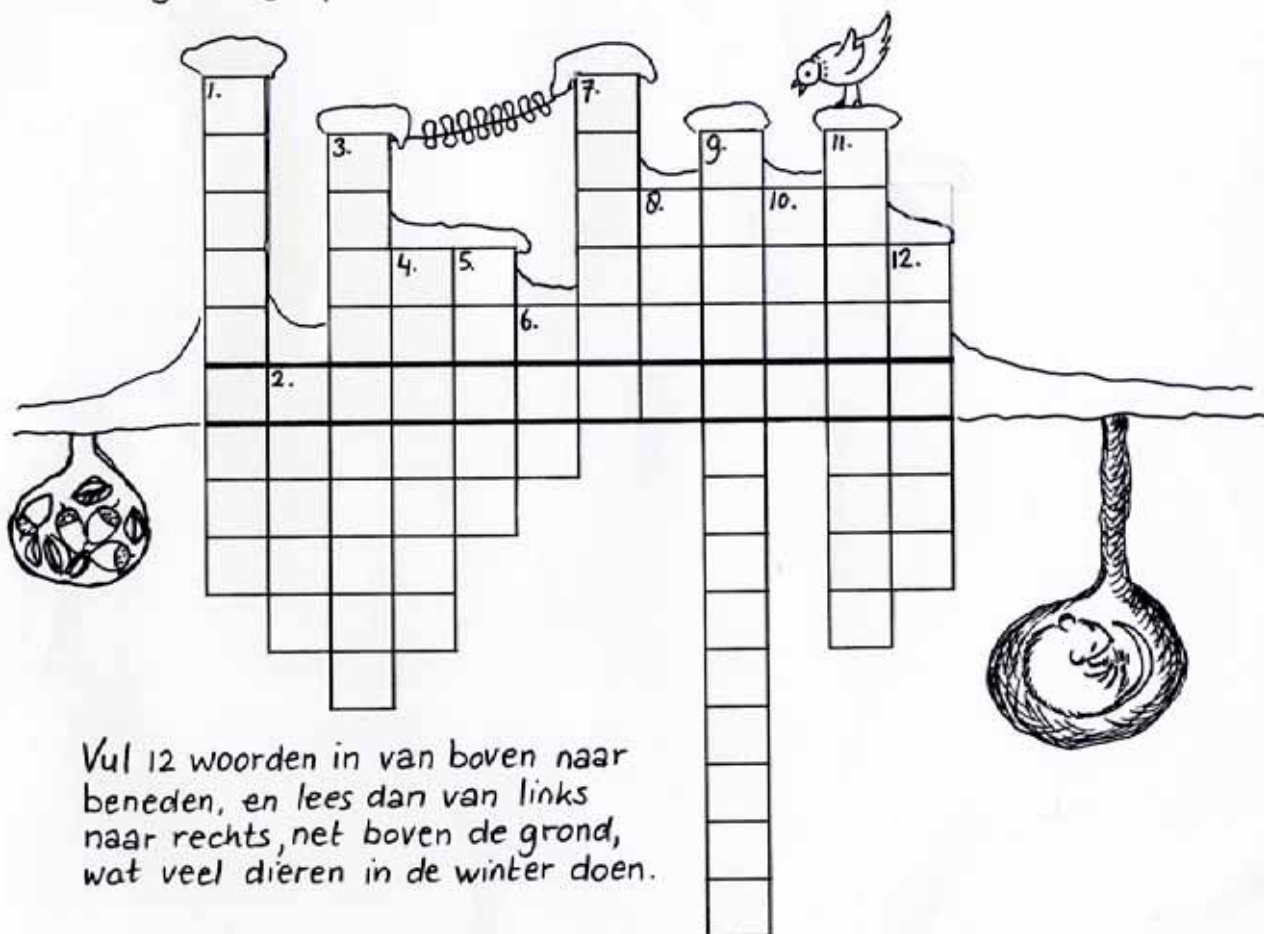 1.
7.
3.
9.
11.
8.
10.
4.
5.
12.
6.
2.
Vul 12 woorden in van boven naar
beneden, en lees dan van links
naar rechts, net boven de grond,
wat veel dieren in de winter doen.